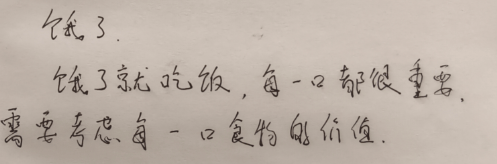 饿了.
饿了就吃饭,每一口都很重要,
需要考虑每一口食物的价值.